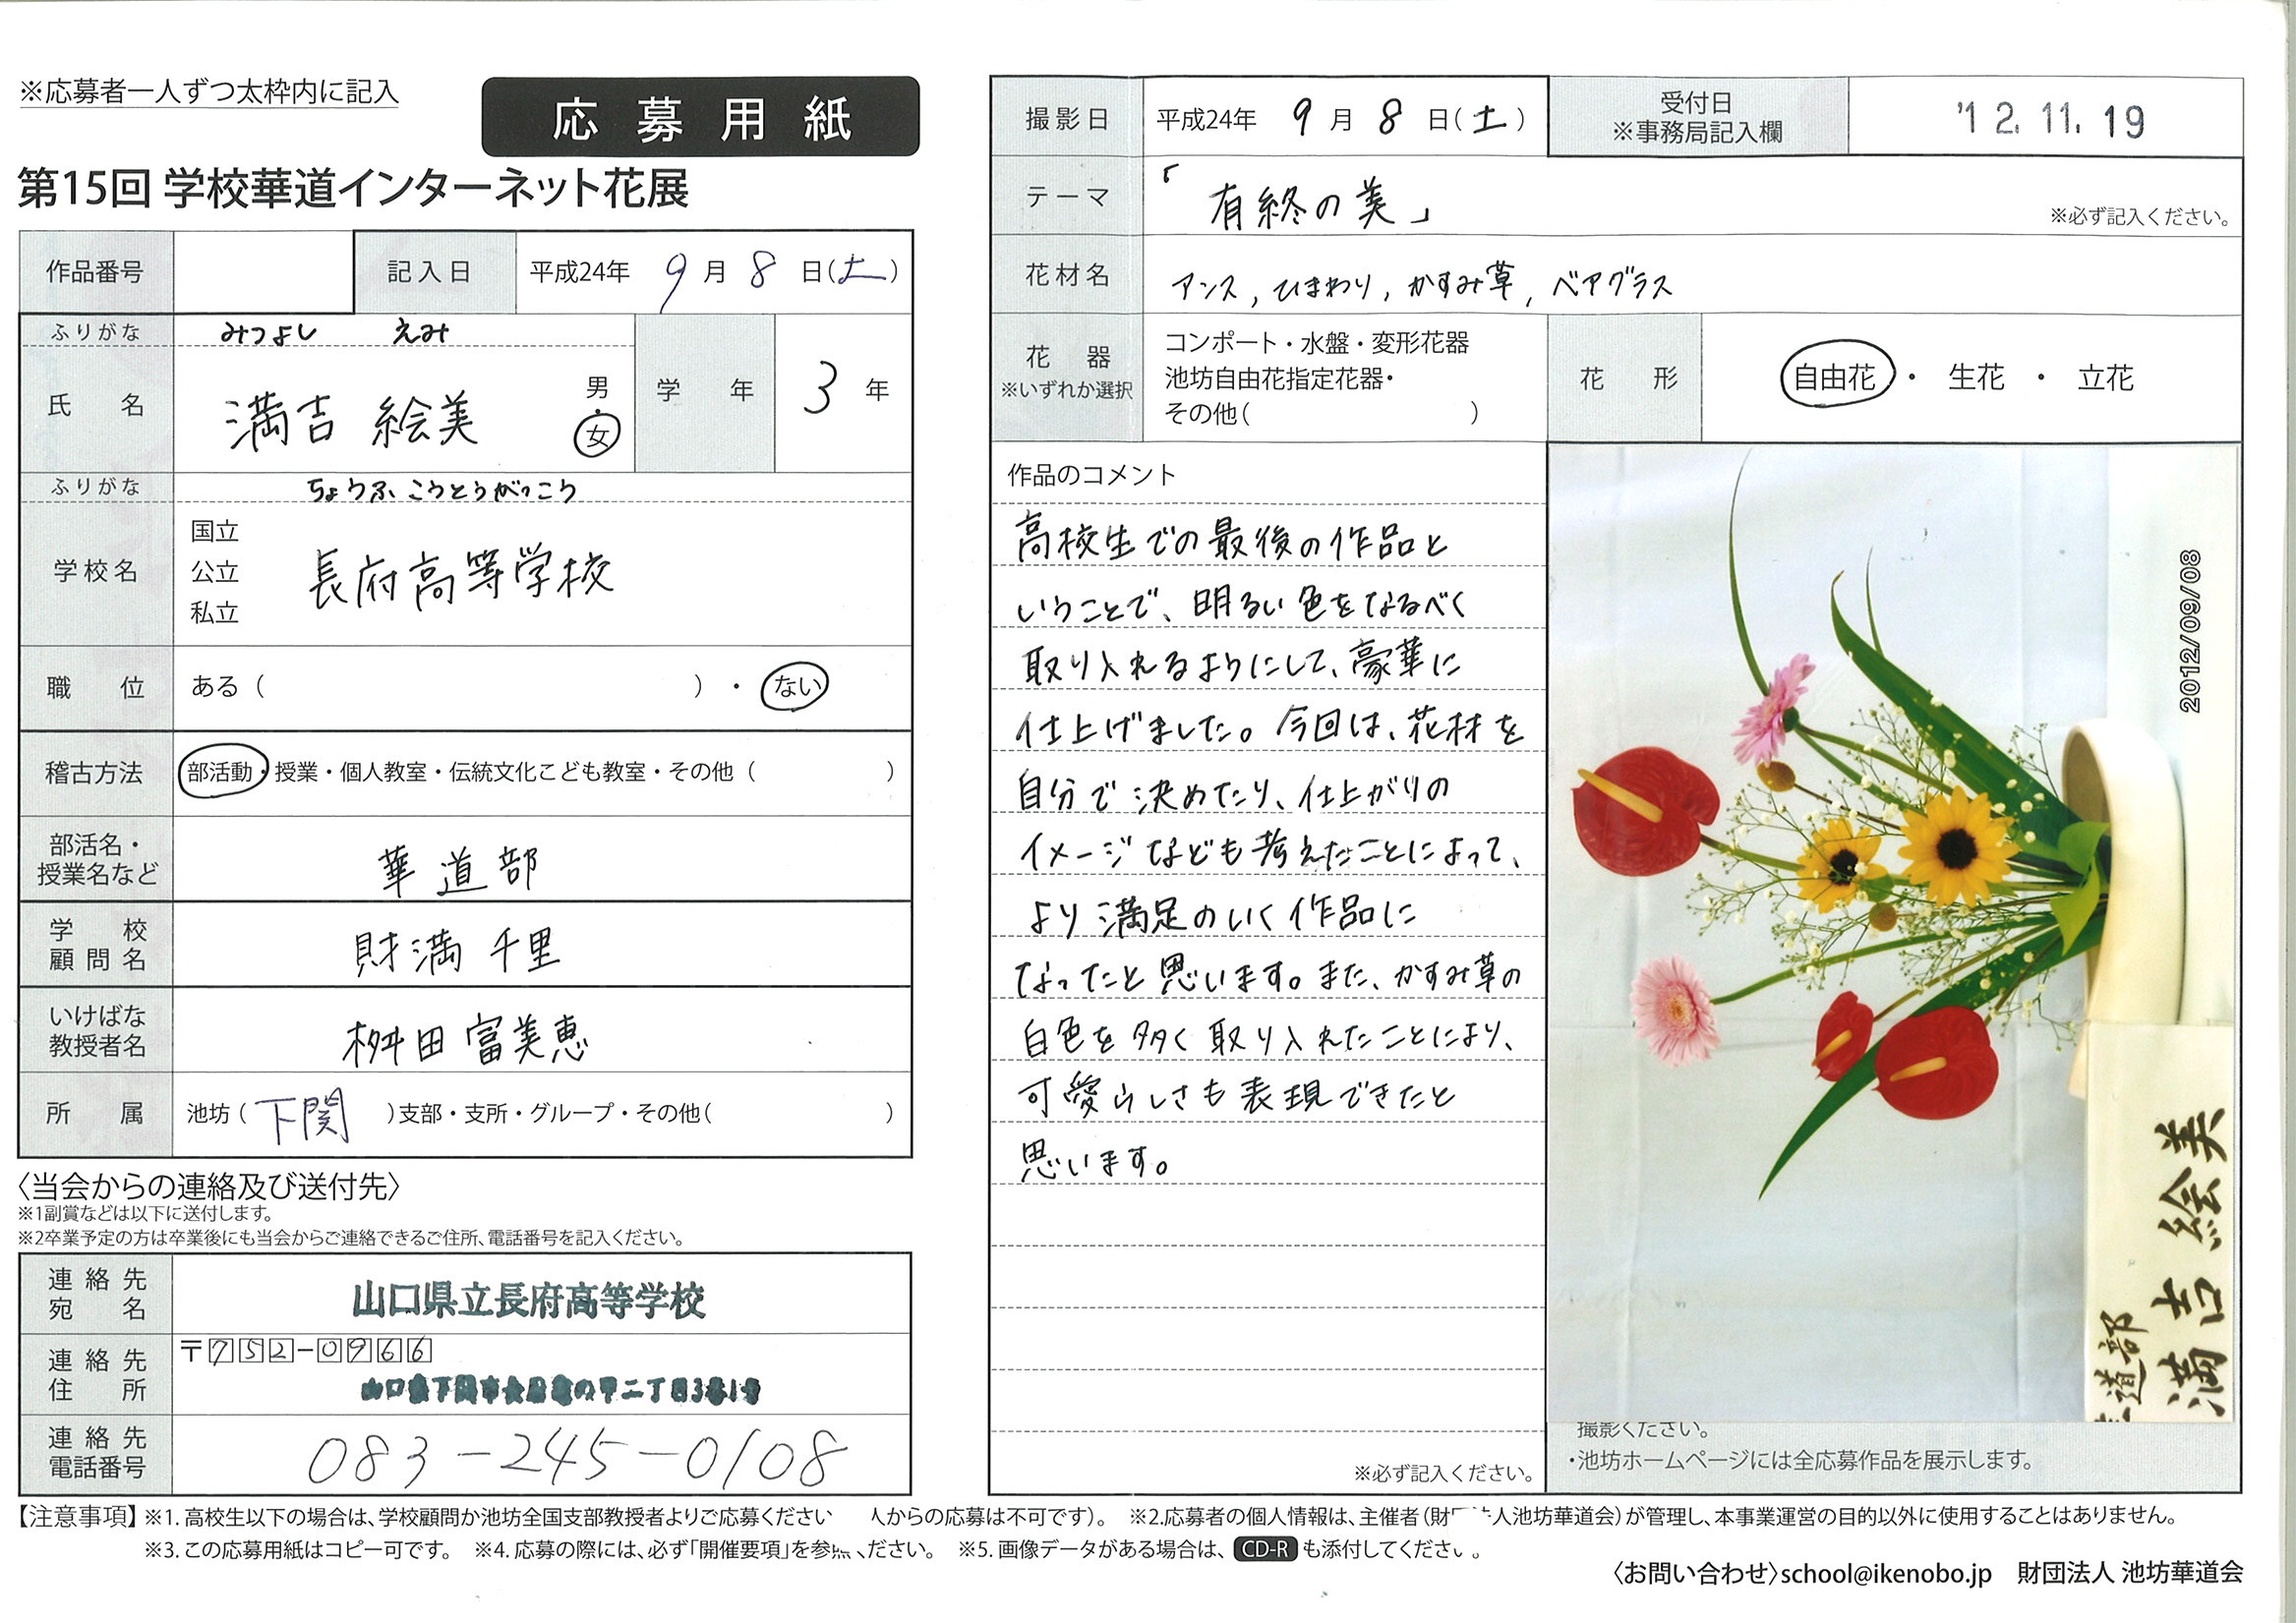 ※応募者一人ずつ太枠内に記入
応募用紙
第15回 学校華道インターネット花展
作品番号
記入日 平成24年 9月 8日(土)
ふりがな みつよし えみ
氏名 満吉 絵美 男・女
学年 3年
ふりがな ちょうふ こうとうがっこう
学校名 国立 公立 私立 長府高等学校
職位 ある( )・ない
稽古方法 部活動・授業・個人教室・伝統文化こども教室・その他( )
部活名・授業名など 華道部
学校顧問名 財満 千里
いけばな教授者名 桝田 富美恵
所属 池坊(下関)支部・支所・グループ・その他( )
〈当会からの連絡及び送付先〉
※1副賞などは以下に送付します。
※2卒業予定の方は卒業後にも当会からご連絡できるご住所、電話番号を記入ください。
連絡先宛名 山口県立長府高等学校
連絡先住所 〒752-0966
連絡先電話番号 083-245-0108
撮影日 平成24年 9月 8日(土)
受付日 ※事務局記入欄 '12.11.19
テーマ 「有終の美」
※必ず記入ください。
花材名 アンス, ひまわり, かすみ草, ベアグラス
花器 ※いずれか選択
コンポート・水盤・変形花器
池坊自由花指定花器・
その他( )
花形 自由花・生花・立花
作品のコメント
高校生での最後の作品と
いうことで、明るい色をなるべく
取り入れるようにして、豪華に
仕上げました。今回は、花材を
自分で決めたり、仕上がりの
イメージなども考えたことによって、
より満足のいく作品に
なったと思います。また、かすみ草の
白色を多く取り入れたことにより、
可愛らしさも表現できたと
思います。
※必ず記入ください。
2012/09/08
道部
満吉 絵美
撮影ください。
・池坊ホームページには全応募作品を展示します。
【注意事項】※1. 高校生以下の場合は、学校顧問か池坊全国支部教授者よりご応募ください 人からの応募は不可です)。 ※2.応募者の個人情報は、主催者(財 人池坊華道会)が管理し、本事業運営の目的以外に使用することはありません。
※3. この応募用紙はコピー可です。 ※4. 応募の際には、必ず「開催要項」を参 ください。 ※5. 画像データがある場合は、 CD-R も添付してください。
〈お問い合わせ〉school@ikenobo.jp 財団法人 池坊華道会